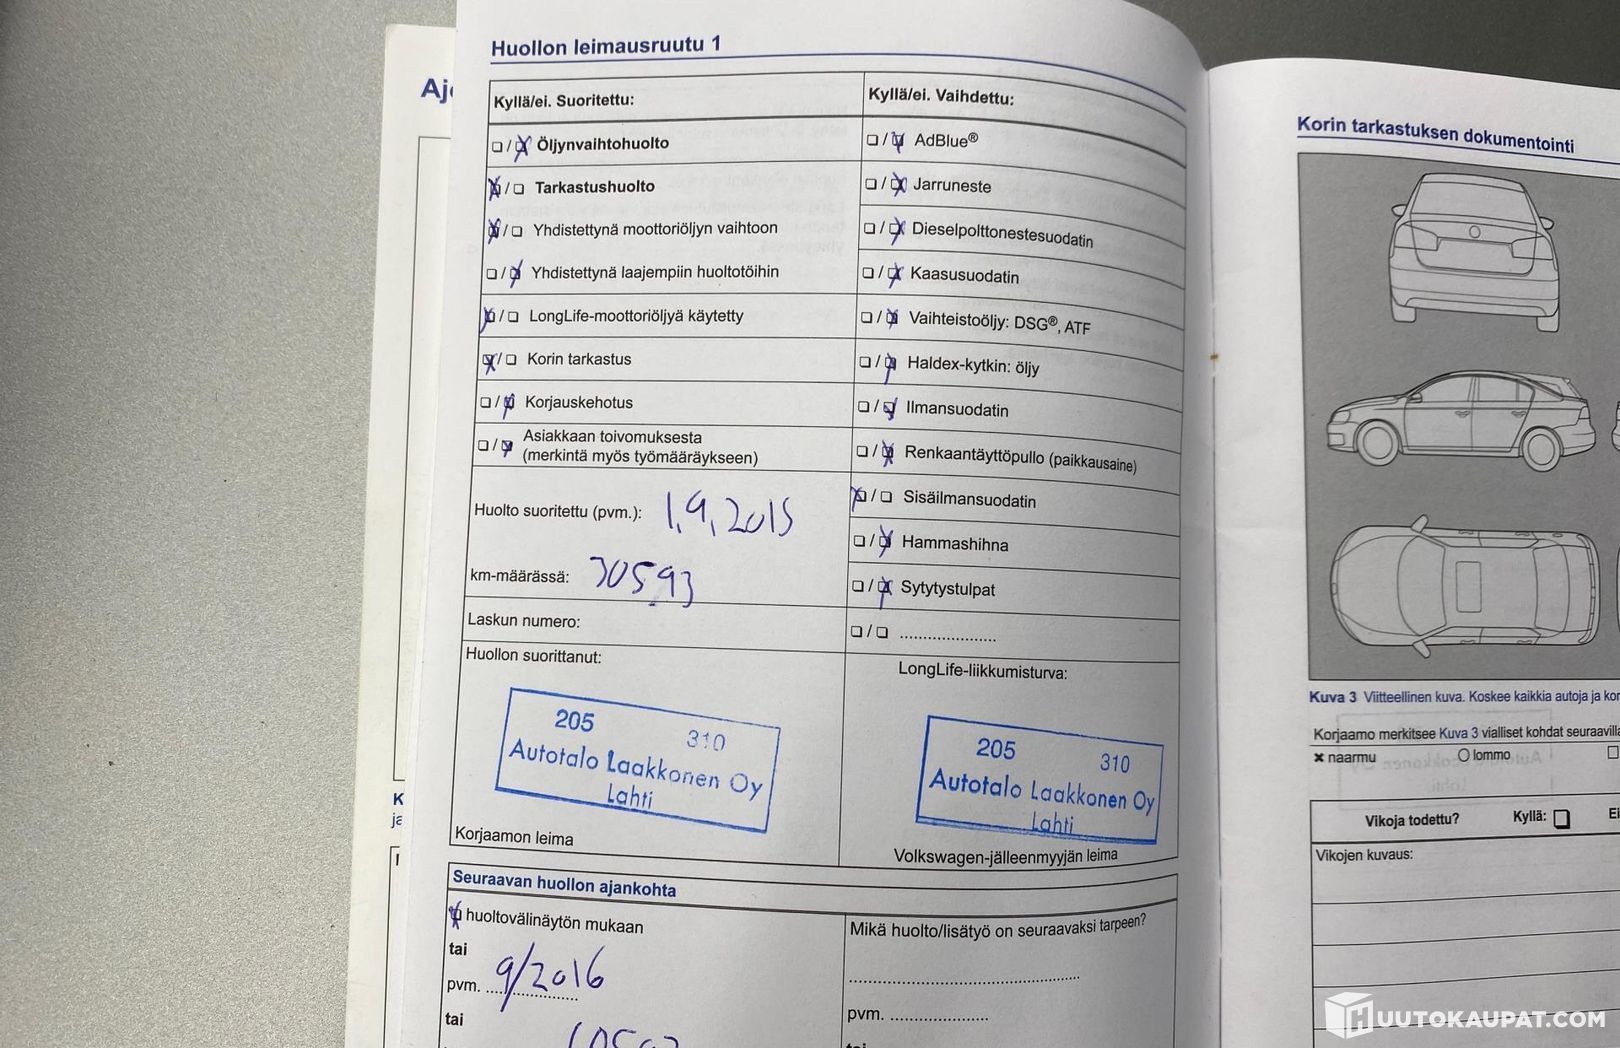 Huollon leimausruutu 1
Kyllä/ei. Suoritettu:
Öljynvaihtohuolto
Tarkastushuolto
Yhdistettynä moottoriöljyn vaihtoon
Yhdistettynä laajempiin huoltotöihin
LongLife-moottoriöljyä käytetty
Korin tarkastus
Korjauskehotus
Asiakkaan toivomuksesta
(merkintä myös työmääräykseen)
Huolto suoritettu (pvm.): 1.9.2015
km-määrässä: 30593
Laskun numero:
Huollon suorittanut:
205 310
Autotalo Laakkonen Oy
Lahti
Korjaamon leima
Kyllä/ei. Vaihdettu:
AdBlue®
Jarruneste
Dieselpolttonestesuodatin
Kaasusuodatin
Vaihteistoöljy: DSG®, ATF
Haldex-kytkin: öljy
Ilmansuodatin
Renkaantäyttöpullo (paikkausaine)
Sisäilmansuodatin
Hammashihna
Sytytystulpat
LongLife-liikkumisturva:
205 310
Autotalo Laakkonen Oy
Lahti
Volkswagen-jälleenmyyjän leima
Seuraavan huollon ajankohta
huoltovälinäytön mukaan
tai
pvm. 9/2016
tai
Mikä huolto/lisätyö on seuraavaksi tarpeen?
pvm.
Korin tarkastuksen dokumentointi
Kuva 3 Viitteellinen kuva. Koskee kaikkia autoja ja
Korjaamo merkitsee Kuva 3 vialliset kohdat
naarmu lommo
Vikoja todettu? Kyllä:
Vikojen kuvaus:
HUUTOKAUPAT.COM